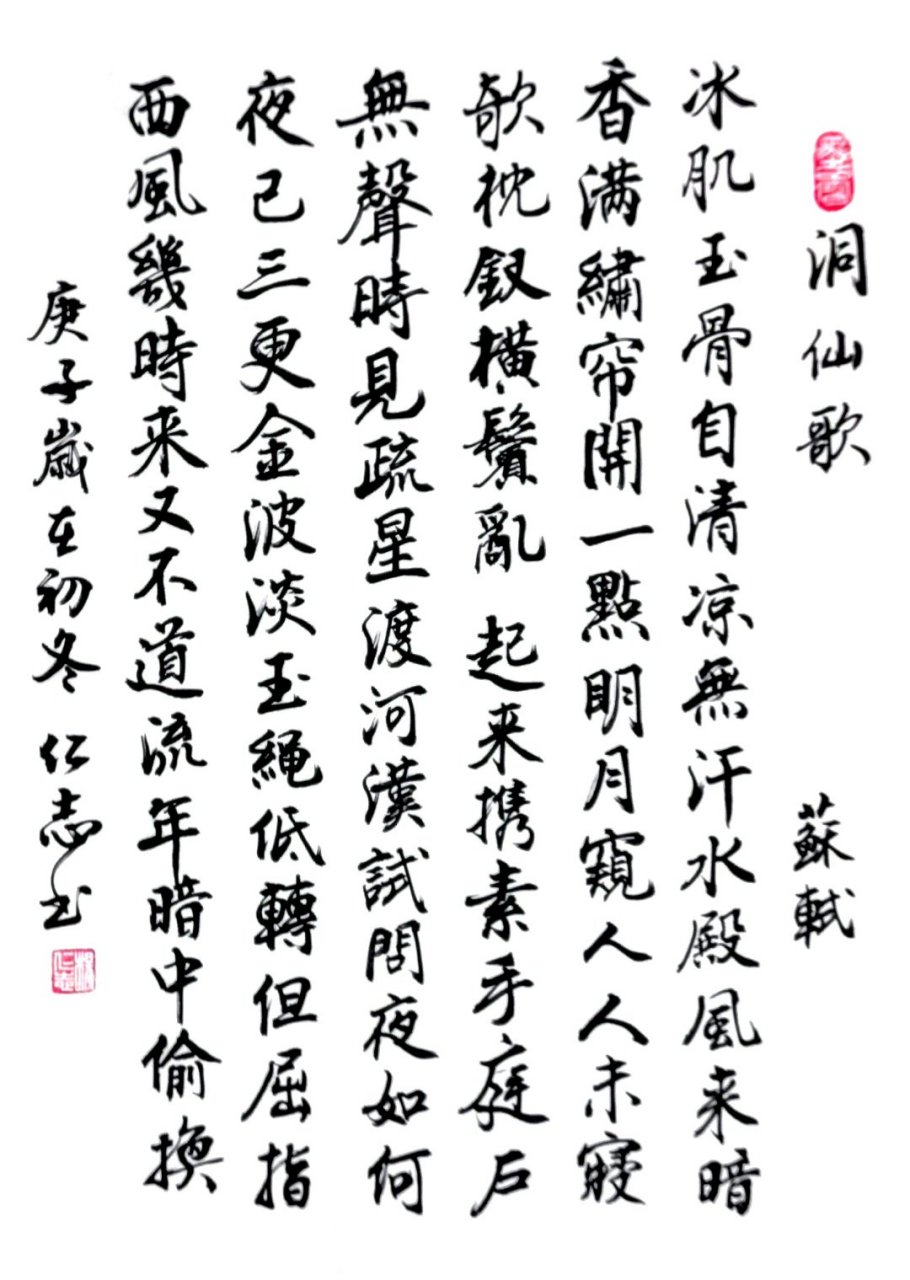 洞仙歌 蘇軾
冰肌玉骨自清凉無汗水殿風来暗
香满繡帘開一點明月窺人人未寢
欹枕釵橫鬢亂 起来携素手庭户
無聲時見疏星渡河漢試問夜如何
夜已三更金波淡玉繩低轉但屈指
西風幾時来又不道流年暗中偷換
庚子歲在初冬 仁志书